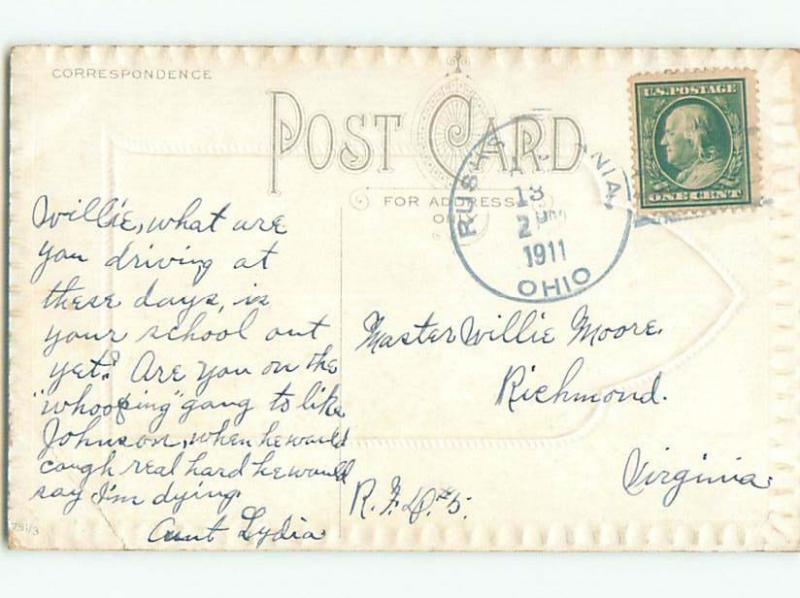 CORRESPONDENCE
POST CARD
FOR ADDRESS
U.S. POSTAGE
ONE CENT
13
1911
OHIO
Willie, what are
you driving at
these days, is
your school out
yet? Are you on the
"whooping" gang to like
Johnson, when he would
cough real hard he would
say I'm dying.
Aunt Lydia
Master Willie Moore.
Richmond.
Virginia.
R.F.D. #5.